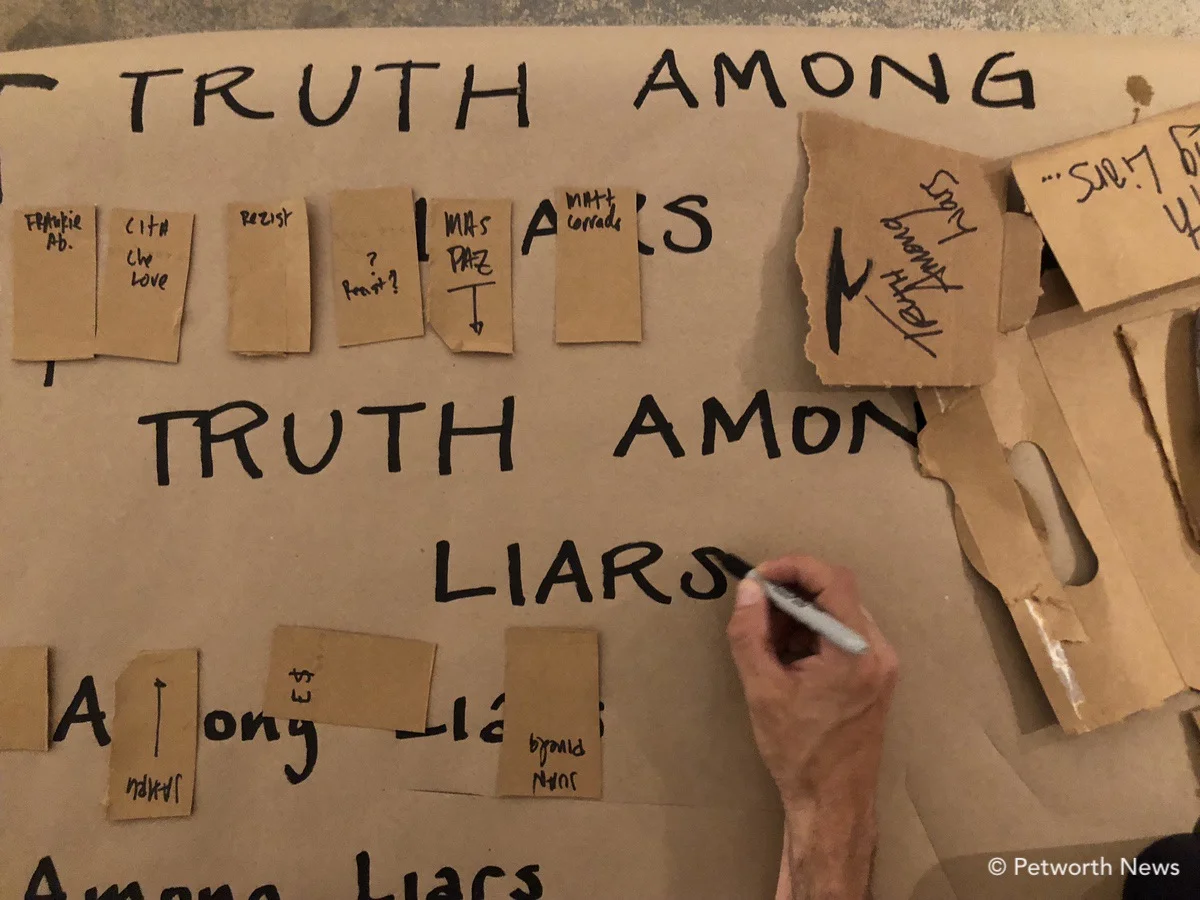 TRUTH AMONG
FRANKiE
Ab.
CitA
Che
Love
Rezist
?
Resist?
MAS
PAZ
MAtt
Corrado
TRUTH
Among
Liars
Liars...
TRUTH AMON
LIARS
Among
JUAN
Pineda
Among Liars
© Petworth News